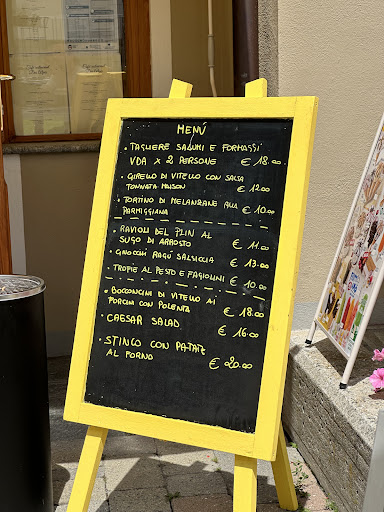 MENÚ
• TAGLIERE SALUMI E FORMAGGI
VDA X 2 PERSONE € 18.00
• GIRELLO DI VITELLO CON SALSA
TONNATA MAISON € 12.00
• TORTINO DI MELANZANE ALLA
PARMIGIANA € 10.00
• RAVIOLI DEL PLIN AL
SUGO DI ARROSTO € 11.00
• GNOCCHI RAGÚ SALSICCIA € 13.00
• TROFIE AL PESTO E FAGIOLINI € 10.00
• BOCCONCINI DI VITELLO AI
PORCINI CON POLENTA € 18.00
• CAESAR SALAD € 16.00
• STINCO CON PATATE
AL FORNO € 20.00